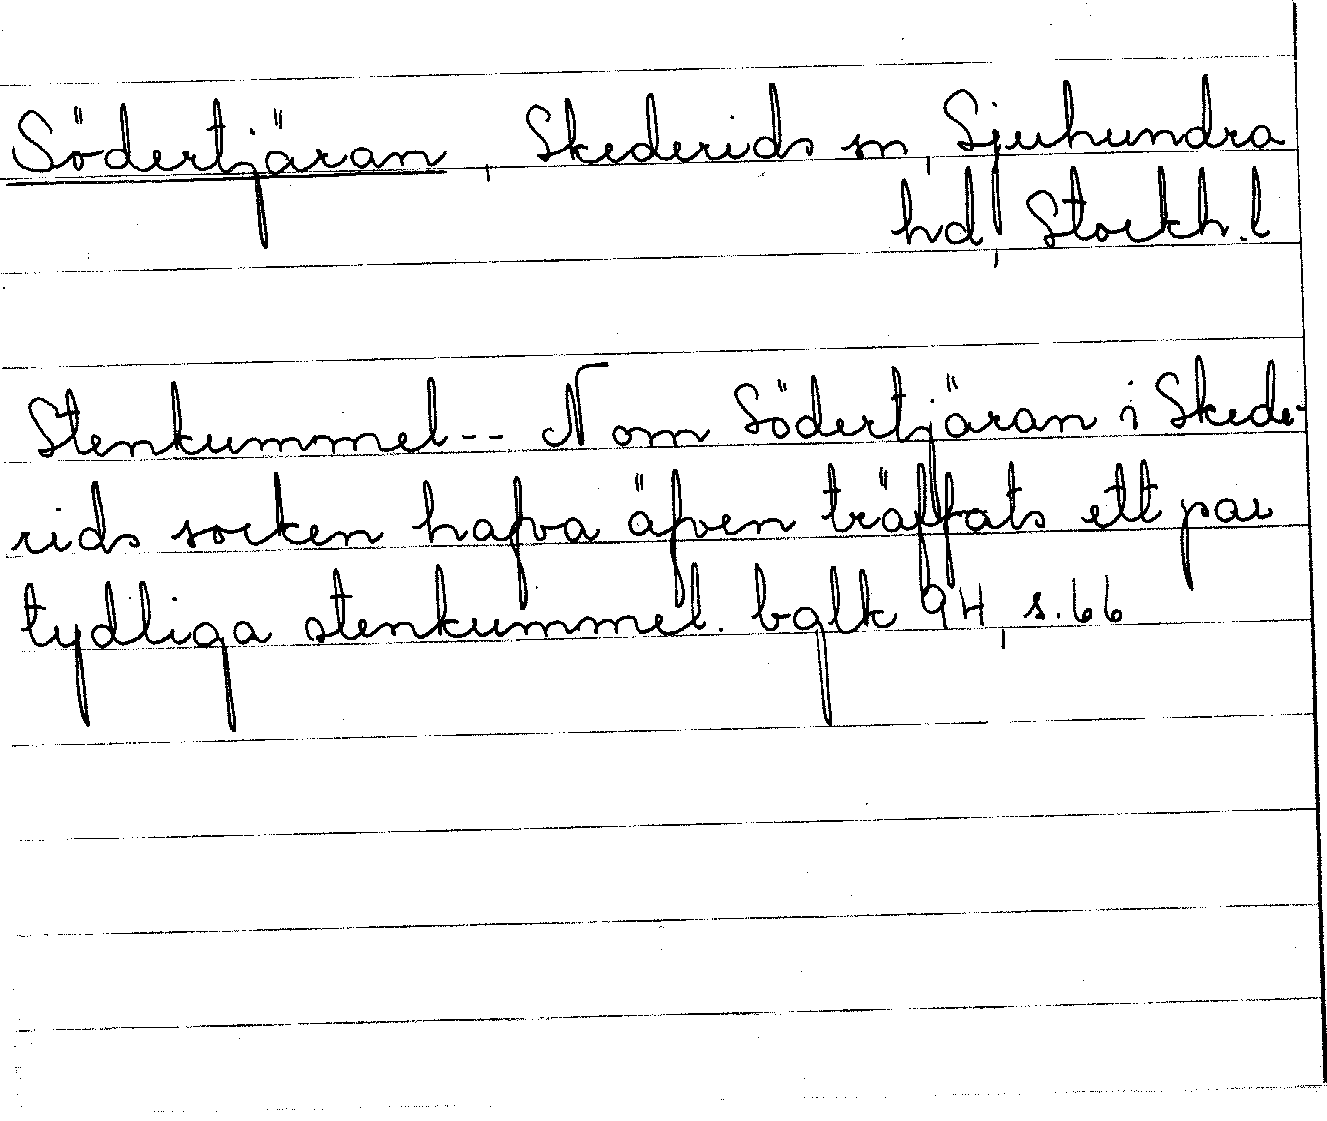 Södertjäran, Skederids sn, Sjuhundra
hd, Stockh.l
Stenkummel-- N om Södertjäran i Skede-
rids socken hafva äfven träffats ett par
tydliga stenkummel. bglk 94, s.66